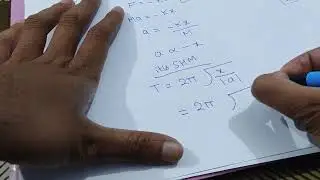 F = -kx
Ma = -kx
a = -kx/M
a ∝ -x
its SHM
T = 2π √(x/|a|)
= 2π √